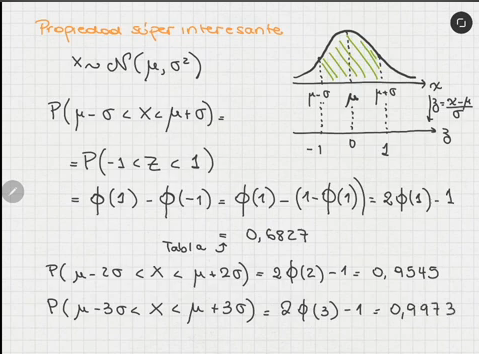 Propiedad súper interesante
X ~ N(μ, σ²)
P(μ-σ < X < μ+σ) =
= P(-1 < Z < 1)
= ϕ(1) - ϕ(-1) = ϕ(1) - (1-ϕ(1)) = 2ϕ(1) - 1
= 0,6827
Tabla
P(μ-2σ < X < μ+2σ) = 2ϕ(2) - 1 = 0,9545
P(μ-3σ < X < μ+3σ) = 2ϕ(3) - 1 = 0,9973
μ-σ μ μ+σ x
z = x-μ/σ
-1 0 1 z